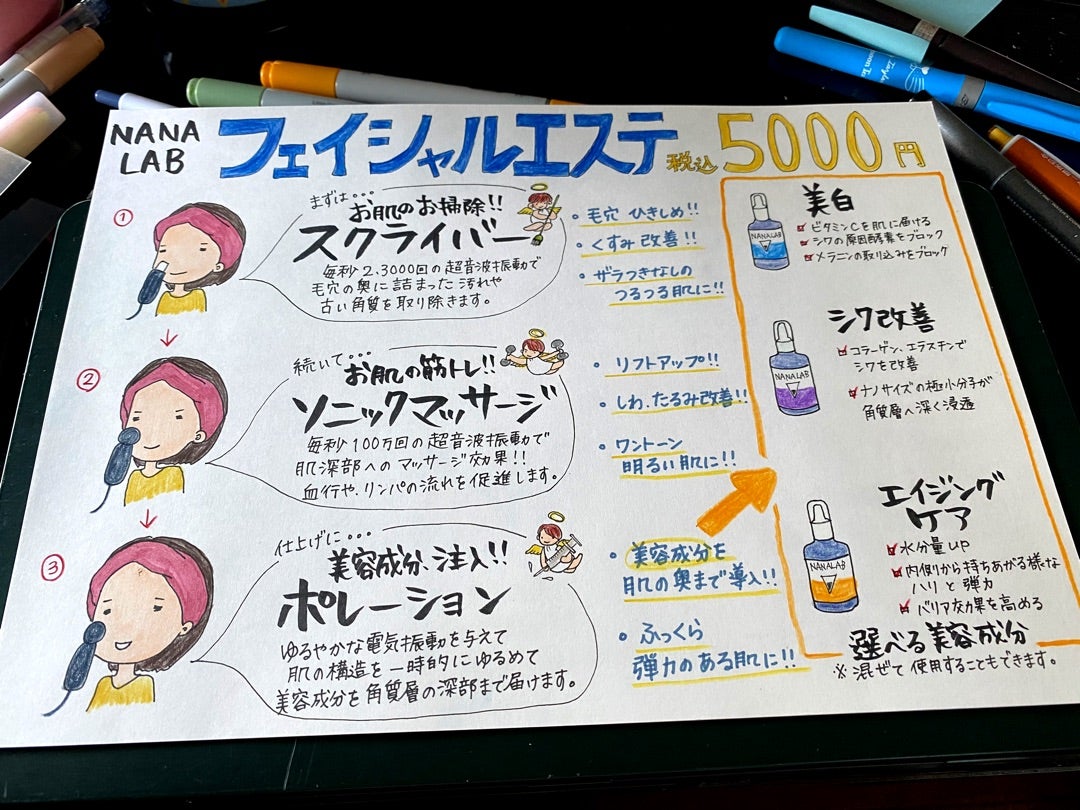 NANA
LAB
フェイシャルエステ 税込 5000円
①
まずは・・・
お肌のお掃除!!
スクライバー
毎秒2,3000回の超音波振動で
毛穴の奥に詰まった汚れや
古い角質を取り除きます。
・毛穴 ひきしめ!!
・くすみ改善!!
・ザラつきなしの
つるつる肌に!!
②
続いて・・・
お肌の筋トレ!!
ソニックマッサージ
毎秒100万回の超音波振動で
肌深部へのマッサージ効果!!
血行や、リンパの流れを促進します。
・リフトアップ!!
・しわ、たるみ改善!!
・ワントーン
明るい肌に!!
③
仕上げに・・・
美容成分、注入!!
ポレーション
ゆるやかな電気振動を与えて
肌の構造を一時的にゆるめて
美容成分を角質層の深部まで届けます。
・美容成分を
肌の奥まで導入!!
・ふっくら
弾力のある肌に!!
NANALAB
美白
ビタミンCを肌に届ける
シワの原因酵素をブロック
メラニンの取り込みをブロック
NANALAB
シワ改善
コラーゲン、エラスチンで
シワを改善
ナノサイズの極小分子が
角質層へ深く浸透
NANALAB
エイジング
ケア
水分量UP
内側から持ちあがる様な
ハリと弾力
バリア効果を高める
選べる美容成分
※混ぜて使用することもできます。